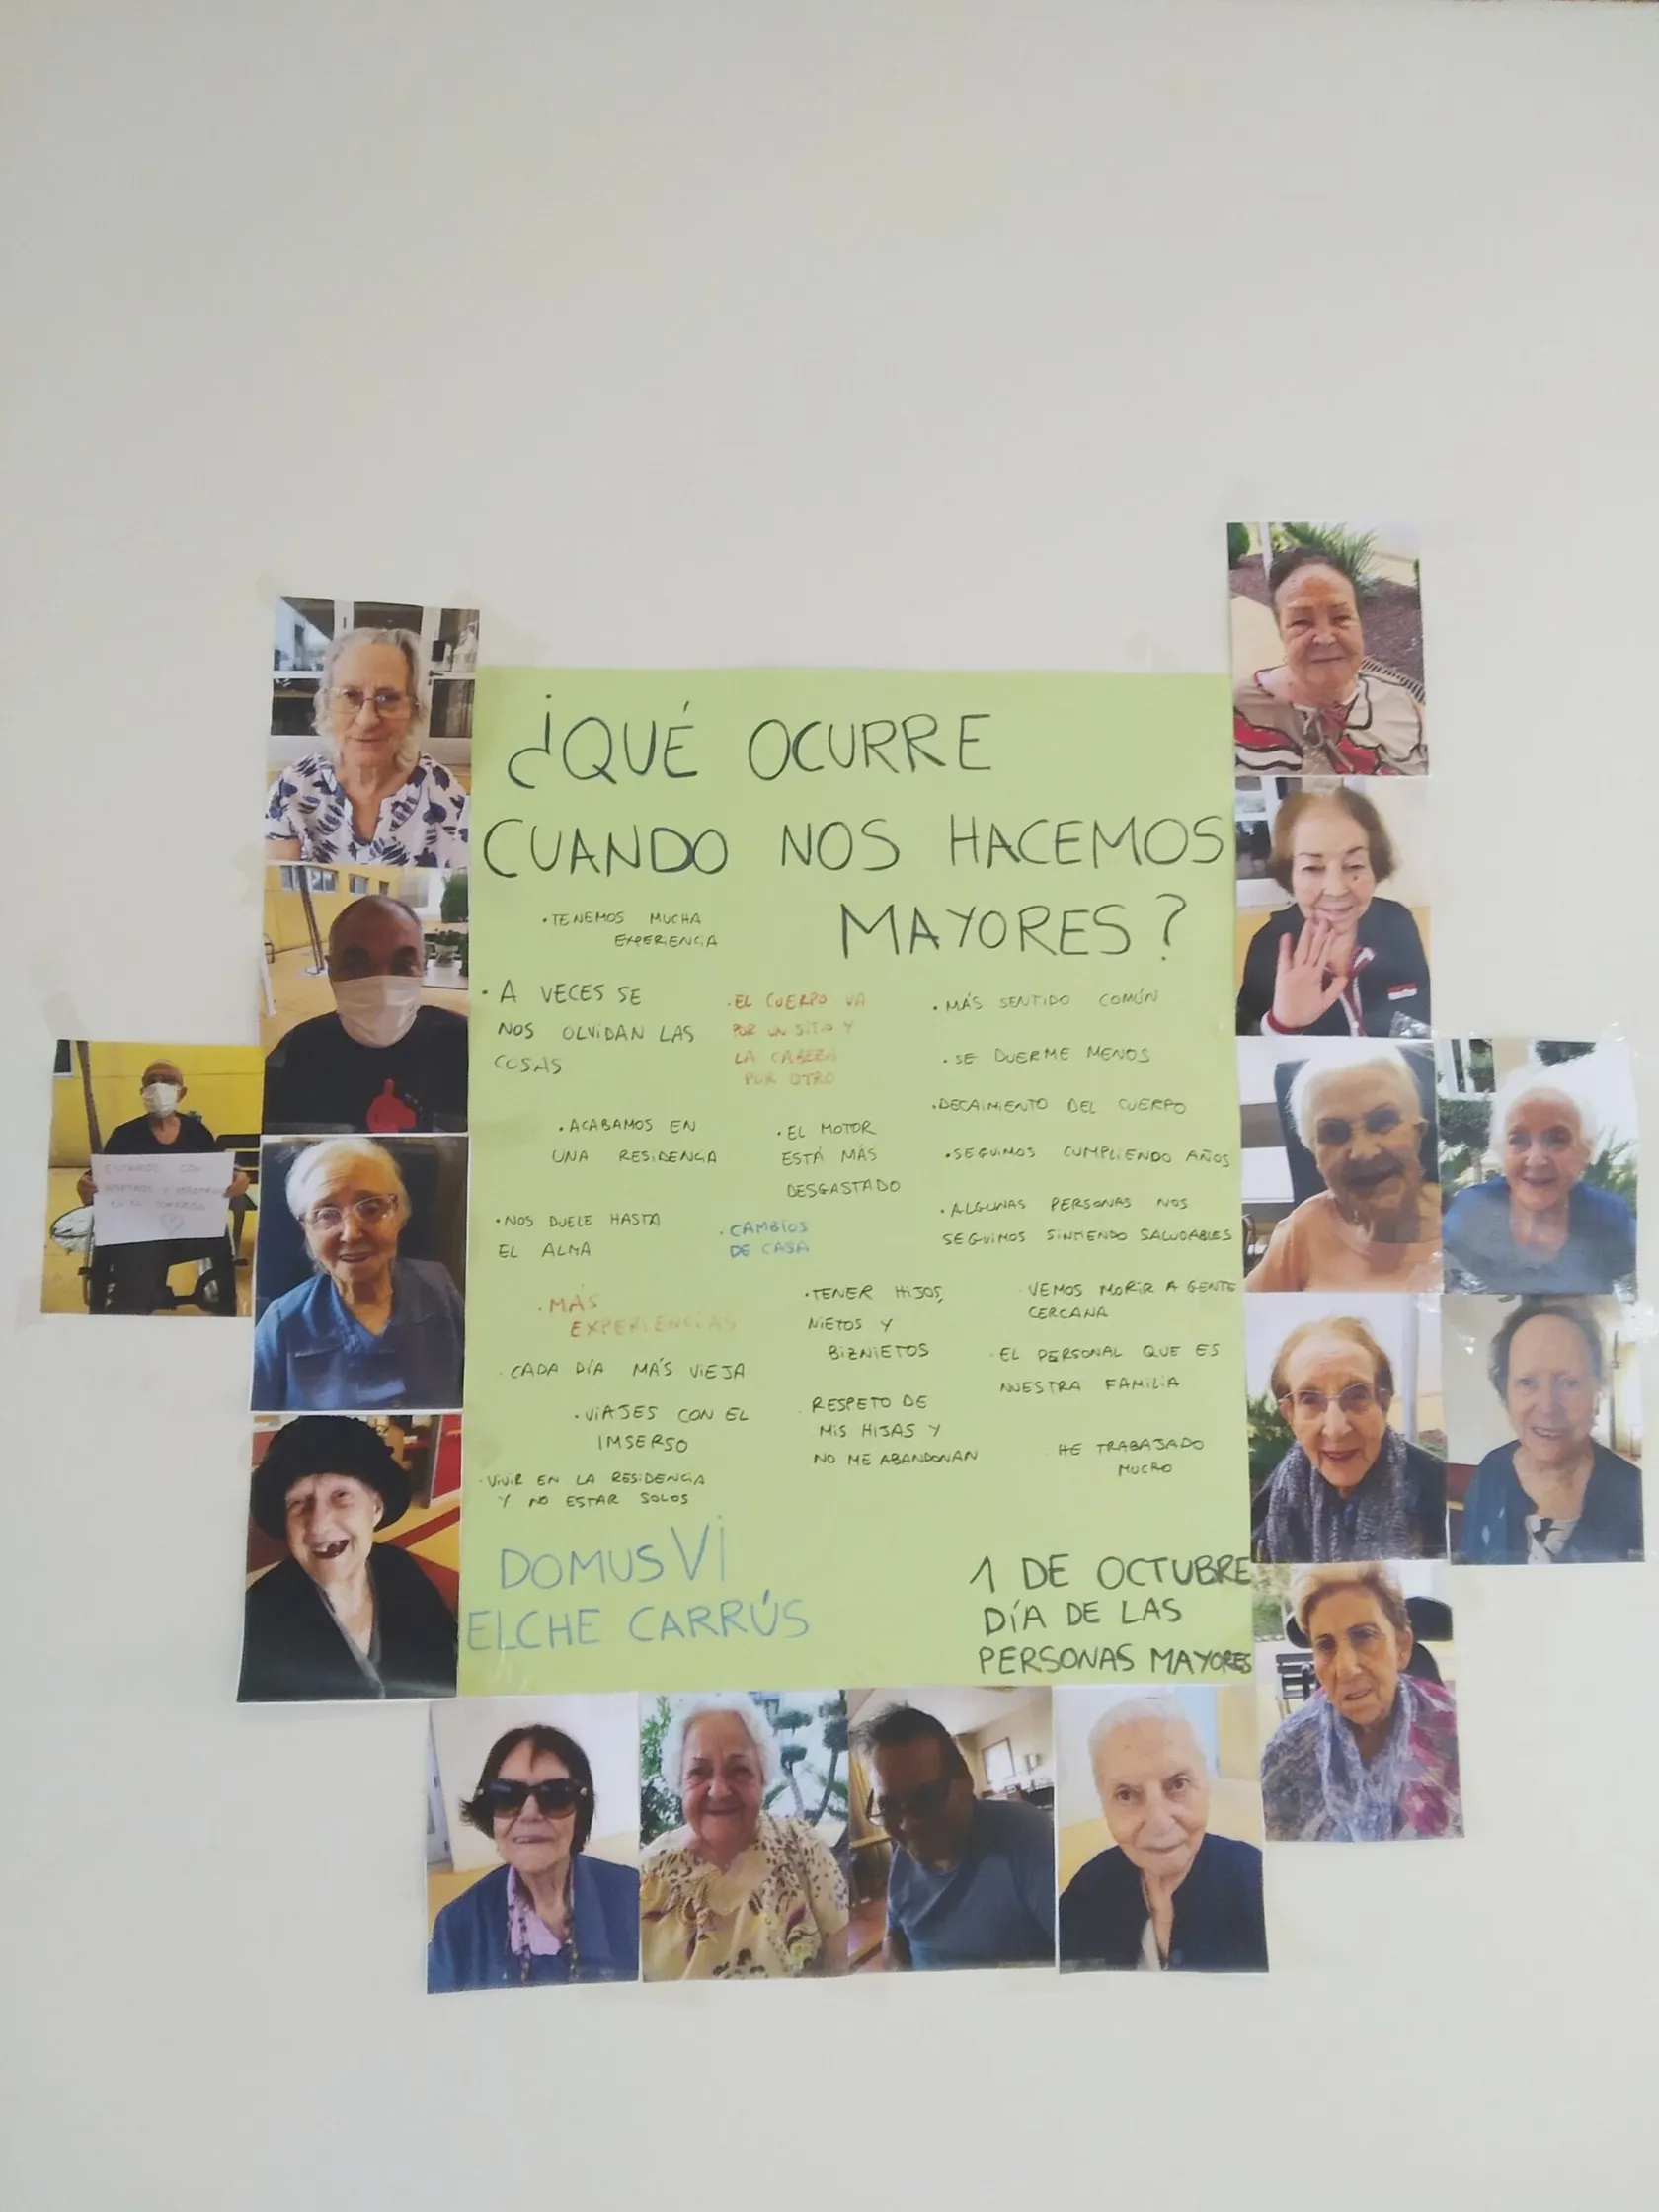 ¿QUÉ OCURRE
CUANDO NOS HACEMOS
MAYORES?
·TENEMOS MUCHA
EXPERIENCIA
·A VECES SE
NOS OLVIDAN LAS
COSAS
·EL CUERPO VA
POR UN SITIO Y
LA CABEZA
POR OTRO
·MÁS SENTIDO COMÚN
·SE DUERME MENOS
·DECAIMIENTO DEL CUERPO
·ACABAMOS EN
UNA RESIDENCIA
·EL MOTOR
ESTÁ MÁS
DESGASTADO
·SEGUIMOS CUMPLIENDO AÑOS
·ALGUNAS PERSONAS NOS
SEGUIMOS SINTIENDO SALUDABLES
·NOS DUELE HASTA
EL ALMA
·CAMBIOS
DE CASA
·MÁS
EXPERIENCIAS
·TENER HIJOS,
NIETOS Y
BIZNIETOS
VEMOS MORIR A GENTE
CERCANA
·CADA DÍA MÁS VIEJA
EL PERSONAL QUE ES
NUESTRA FAMILIA
·VIAJES CON EL
IMSERSO
RESPETO DE
MIS HIJAS Y
NO ME ABANDONAN
HE TRABAJADO
MUCHO
·VIVIR EN LA RESIDENCIA
Y NO ESTAR SOLOS
DOMUSVI
ELCHE CARRÚS
1 DE OCTUBRE
DÍA DE LAS
PERSONAS MAYORES
ESTAMOS CON